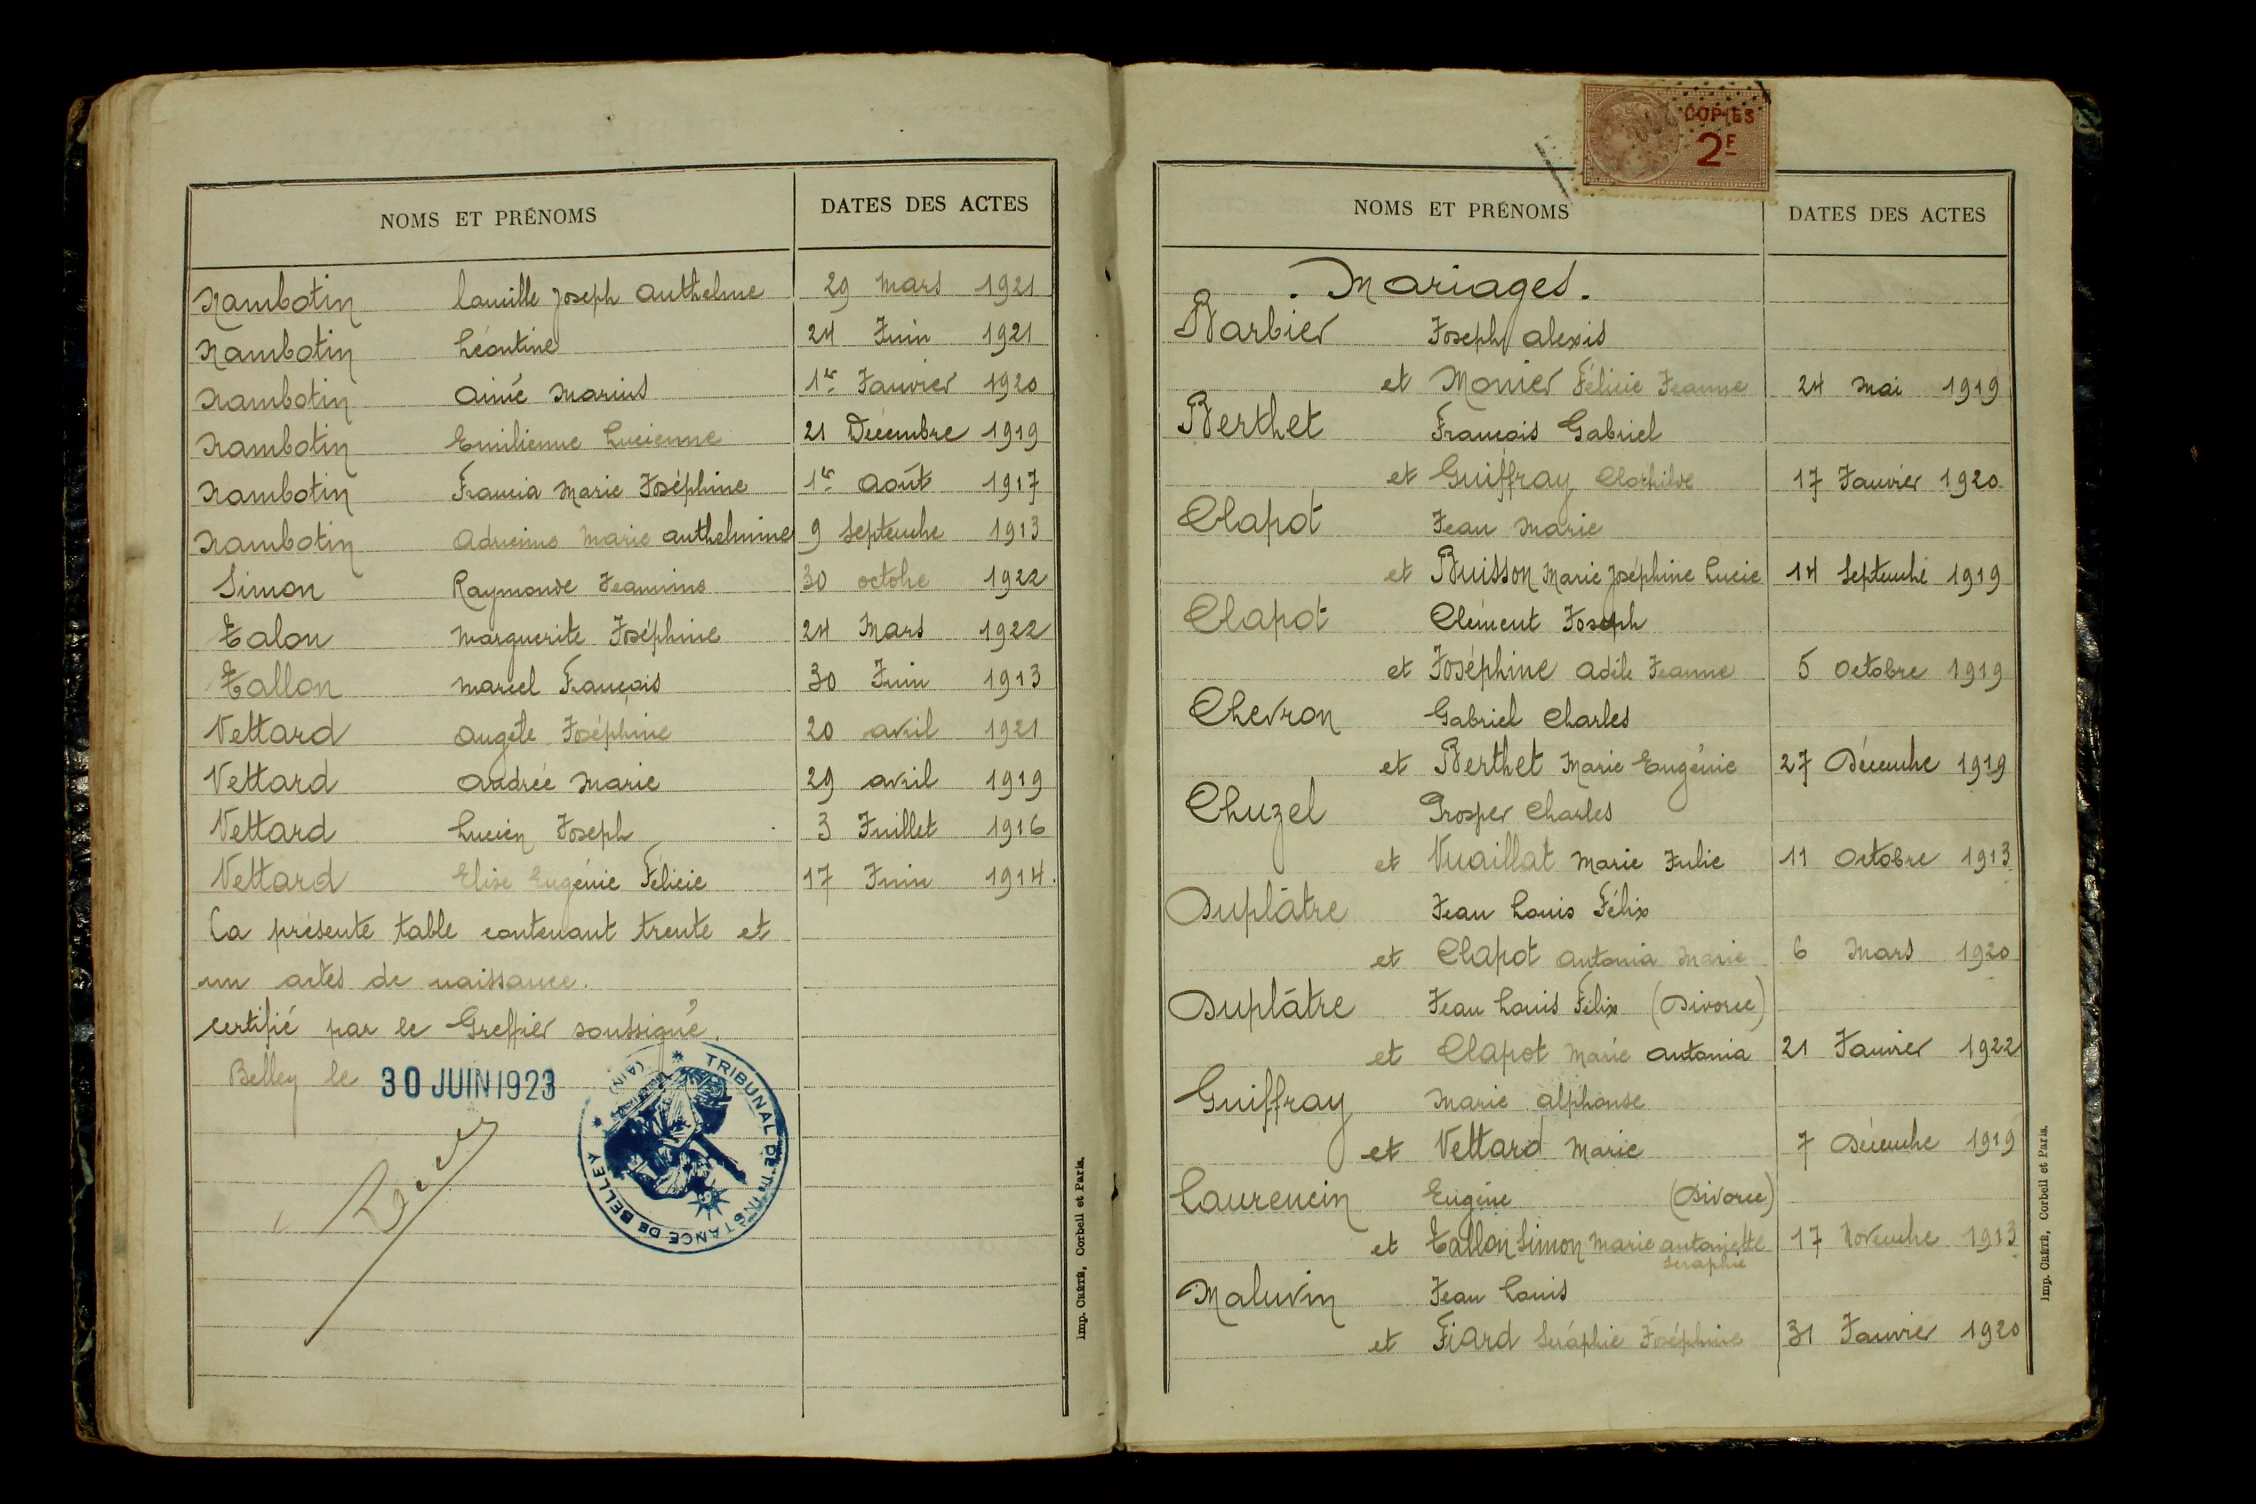 NOMS ET PRÉNOMS DATES DES ACTES
Rambotin Camille Joseph Anthelme 29 Mars 1921
Rambotin Léontine 24 Juin 1921
Rambotin Aimé Marius 1er Janvier 1920
Rambotin Emilienne Lucienne 21 Décembre 1919
Rambotin Francia Marie Joséphine 1er Août 1917
Rambotin Adrienne Marie Anthelmine 9 Septembre 1913
Simon Raymonde Jeannine 30 octobre 1922
Talon Marguerite Joséphine 24 Mars 1922
Tallon Marcel François 30 Juin 1913
Vettard Angèle Joséphine 20 avril 1921
Vettard Andrée Marie 29 avril 1919
Vettard Lucien Joseph 3 Juillet 1916
Vettard Elise Eugénie Félicie 17 Juin 1914.
La présente table contenant trente et
un actes de naissance.
certifié par le Greffier soussigné.
Belley le 30 JUIN 1923
TRIBUNAL DE 1re INSTANCE DE BELLEY (AIN)
Imp. CRÉTÉ, Corbeil et Paris.
COPIES
2F
NOMS ET PRÉNOMS DATES DES ACTES
. Mariages.
Barbier Joseph Alexis
et Monier Félicie Jeanne 24 Mai 1919
Berthet François Gabriel
et Guiffray Clothilde 17 Janvier 1920
Clapot Jean Marie
et Buisson Marie Joséphine Lucie 14 Septembre 1919
Clapot Clément Joseph
et Joséphine Adèle Jeanne 5 Octobre 1919
Chevron Gabriel Charles
et Berthet Marie Eugénie 27 Décembre 1919
Chuzel Prosper Charles
et Vuaillat Marie Julie 11 Octobre 1913
Duplâtre Jean Louis Félix
et Clapot Antonia Marie 6 Mars 1920
Duplâtre Jean Louis Félix (Divorce)
et Clapot Marie Antonia 21 Janvier 1922
Guiffray Marie Alphonse
et Vettard Marie 7 Décembre 1919
Laurencin Eugène (Divorce)
et Tallon Simon Marie Antoinette 17 Novembre 1913
Séraphie
Maluvin Jean Louis
et Fiard Séraphie Joséphine 31 Janvier 1920
Imp. CRÉTÉ, Corbeil et Paris.